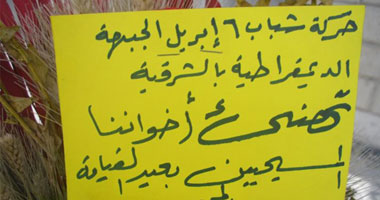 حركة شباب ٦ إبريل الجبهة
الديمقراطية بالشرقية
تهنئ أخواننا
المسيحيين بعيد القيامة